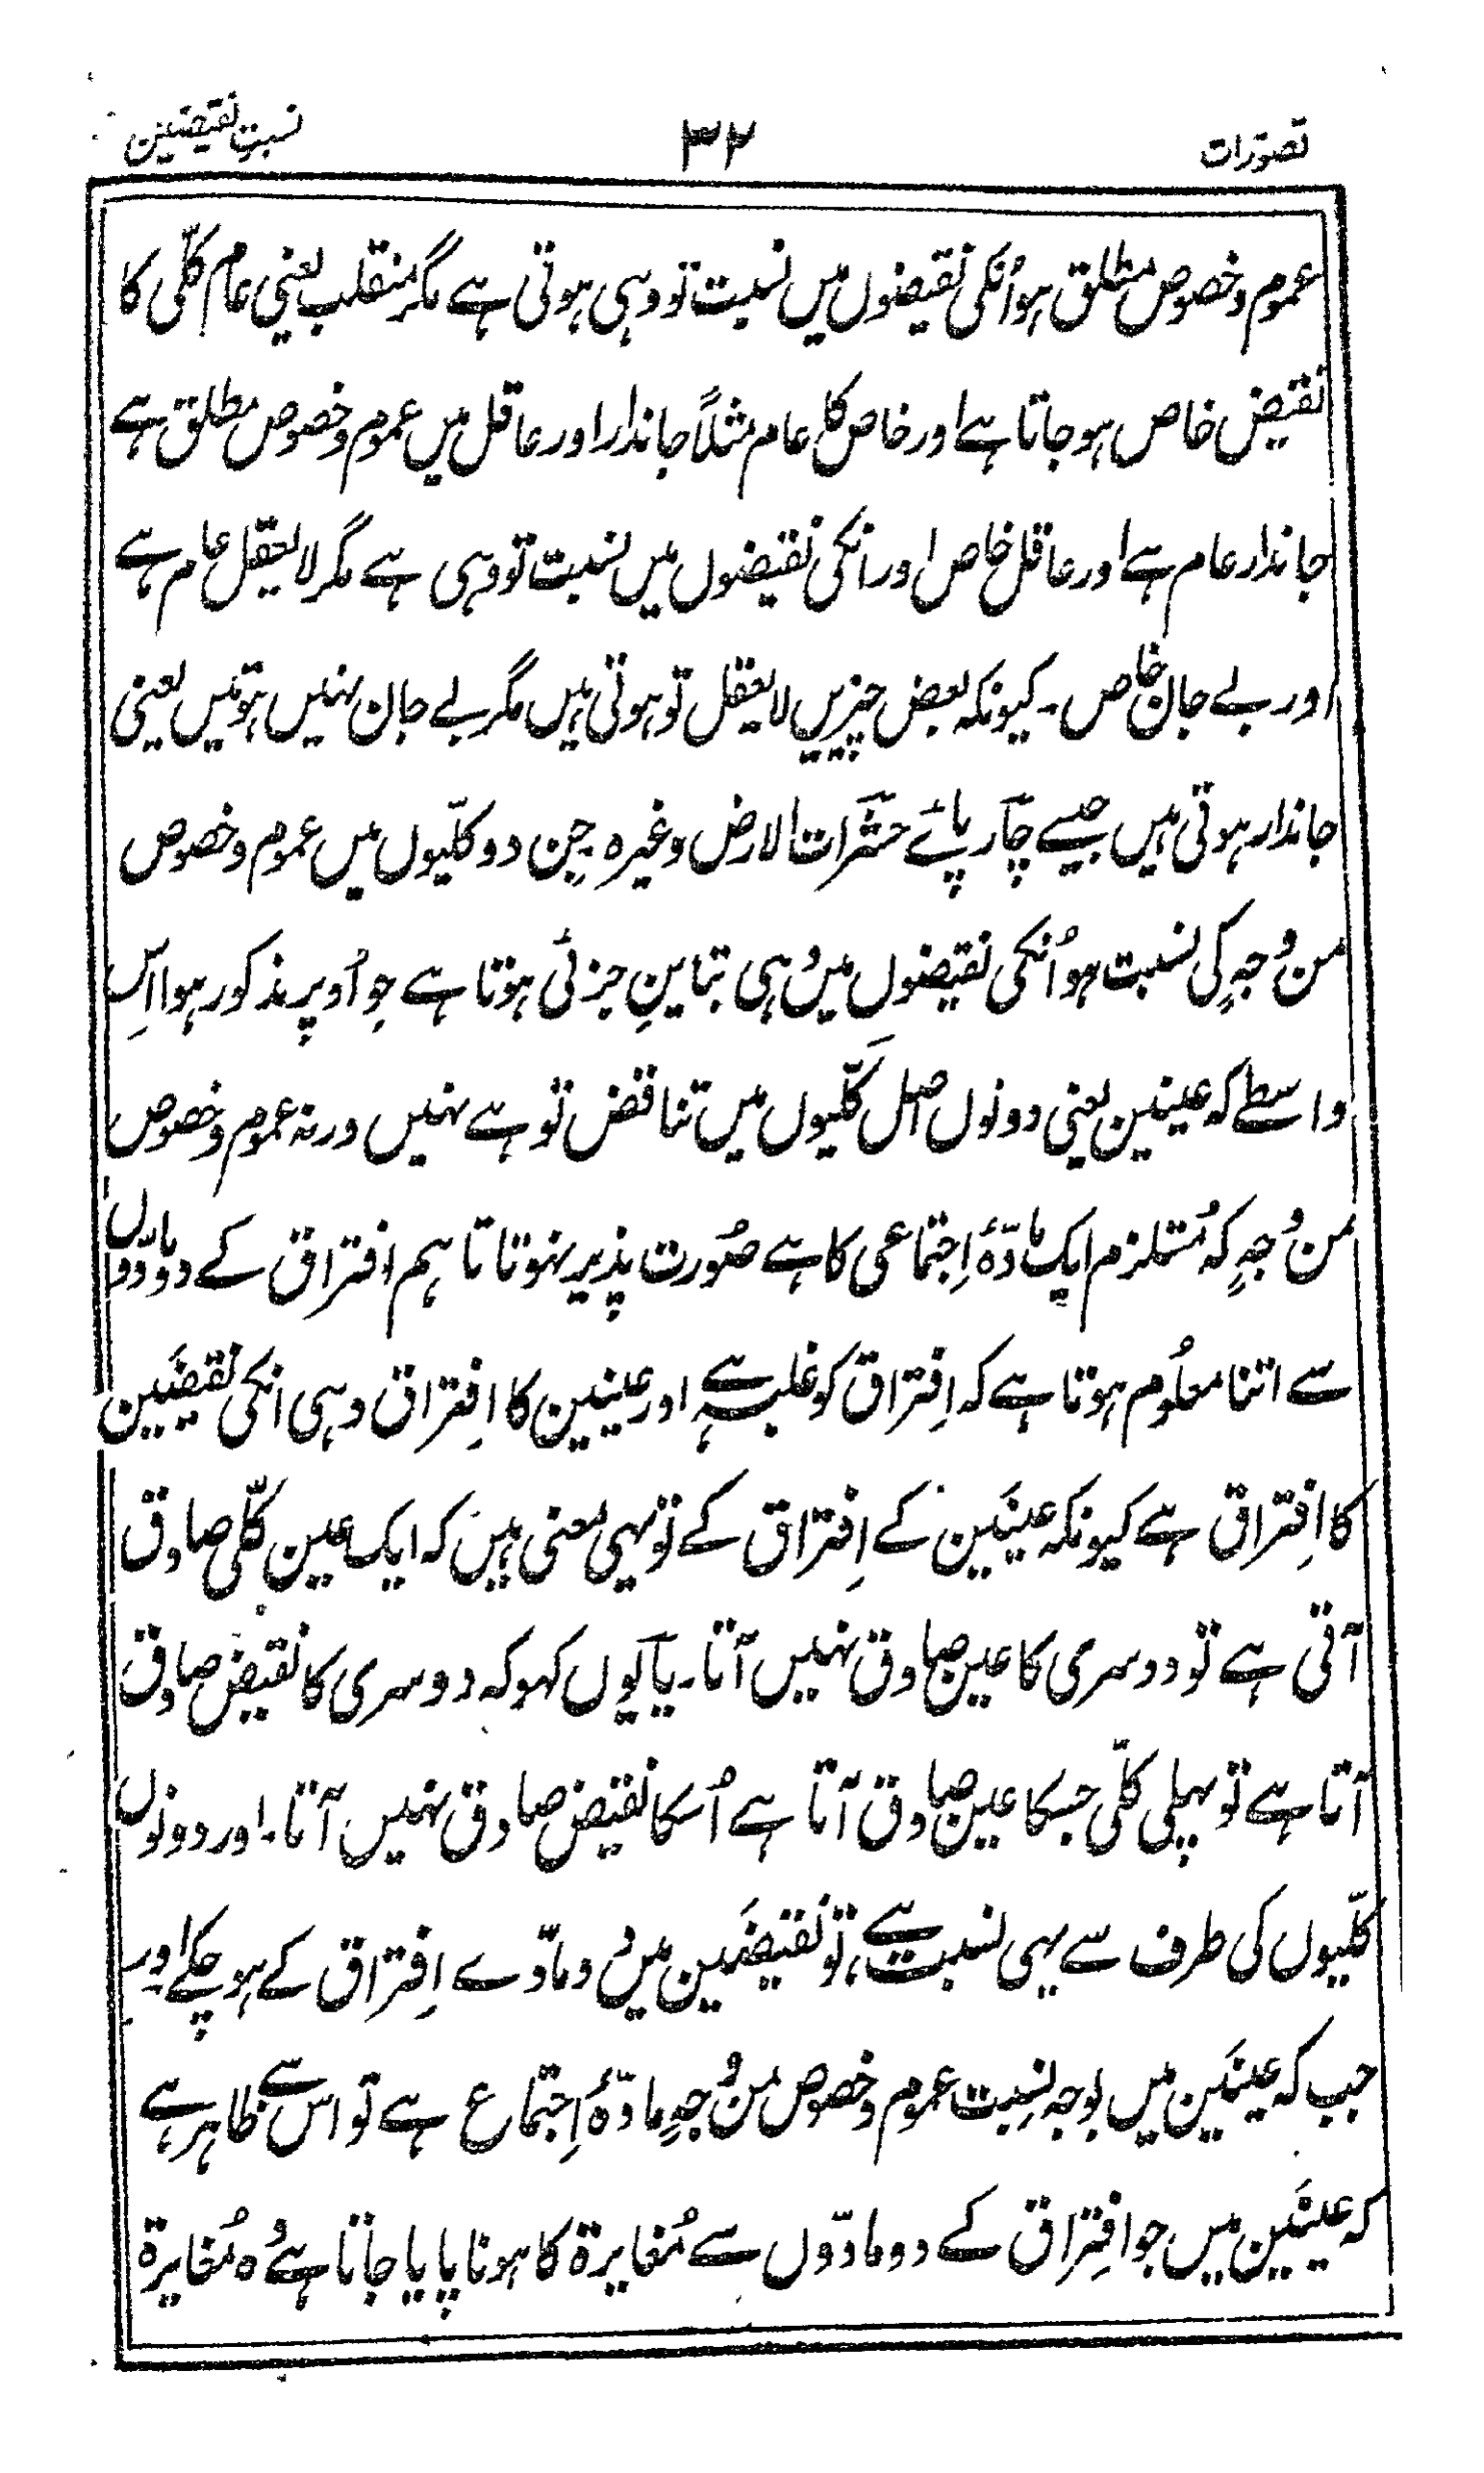 تصوّرات ۳۲ نسبت نقیضین
عموم و خصوص مطلق ہو اُنکی نقیضوں میں نسبت تو وہی ہوتی ہے مگر منقلب یعنی عام کلّی کا
نقیض خاص ہو جاتا ہے اور خاص کا عام مثلاً جاندار اور عاقل میں عموم و خصوص مطلق ہے
جاندار عام ہے اور عاقل خاص اور انکی نقیضوں میں نسبت تو وہی ہے مگر لا یعقل عام ہے
اور بے جان خاص ۔ کیونکہ بعض چیزیں لا یعقل تو ہوتی ہیں مگر بے جان نہیں ہوتیں یعنی
جاندار ہوتی ہیں جیسے چار پائے حشرات الارض وغیرہ ۔ جن دو کلّیوں میں عموم و خصوص
من وُجہٍ کی نسبت ہو اُنکی نقیضوں میں وُہی تباینِ جزئی ہوتا ہے جو اُوپر مذکور ہوا اِس
واسطے کہ عینین یعنی دونوں اصل کلّیوں میں تناقض تو ہے نہیں ورنہ عموم و خصوص
من وُجہٍ کہ مُستلزم ایک مادّۂ اِجتماعی کا ہے صُورت پذیر نہوتا تا ہم افتراق کے دو مادّوں
سے اتنا معلُوم ہوتا ہے کہ اِفتراق کو غلبہ ہے اور عینین کا اِفتراق وہی انکی نقیضَین
کا اِفتراق ہے کیونکہ عینَین کے اِفتراق کے تو یہی معنی ہیں کہ ایک عین کلّی صادق
آتی ہے تو دوسری کا عین صادق نہیں آتا ۔ یا یُوں کہو کہ دوسری کا نقیض صادق
آتا ہے تو پہلی کلّی جسکا عین صادق آتا ہے اُسکا نقیض صادق نہیں آتا ۔ اور دونوں
کلّیوں کی طرف سے یہی نسبت ہے، تو نقیضَین میں دُو مادّے اِفتراق کے ہو چکے اور
جب کہ عینَین میں بوجہ نسبت عموم و خصوص من وُجہٍ مادّۂ اِجتماع ہے تو اس سے ظاہر ہے
کہ عینَین میں جو افتِراق کے دو مادّوں سے مُغایرۃ کا ہونا پایا جاتا ہے وُہ مُغایرۃ